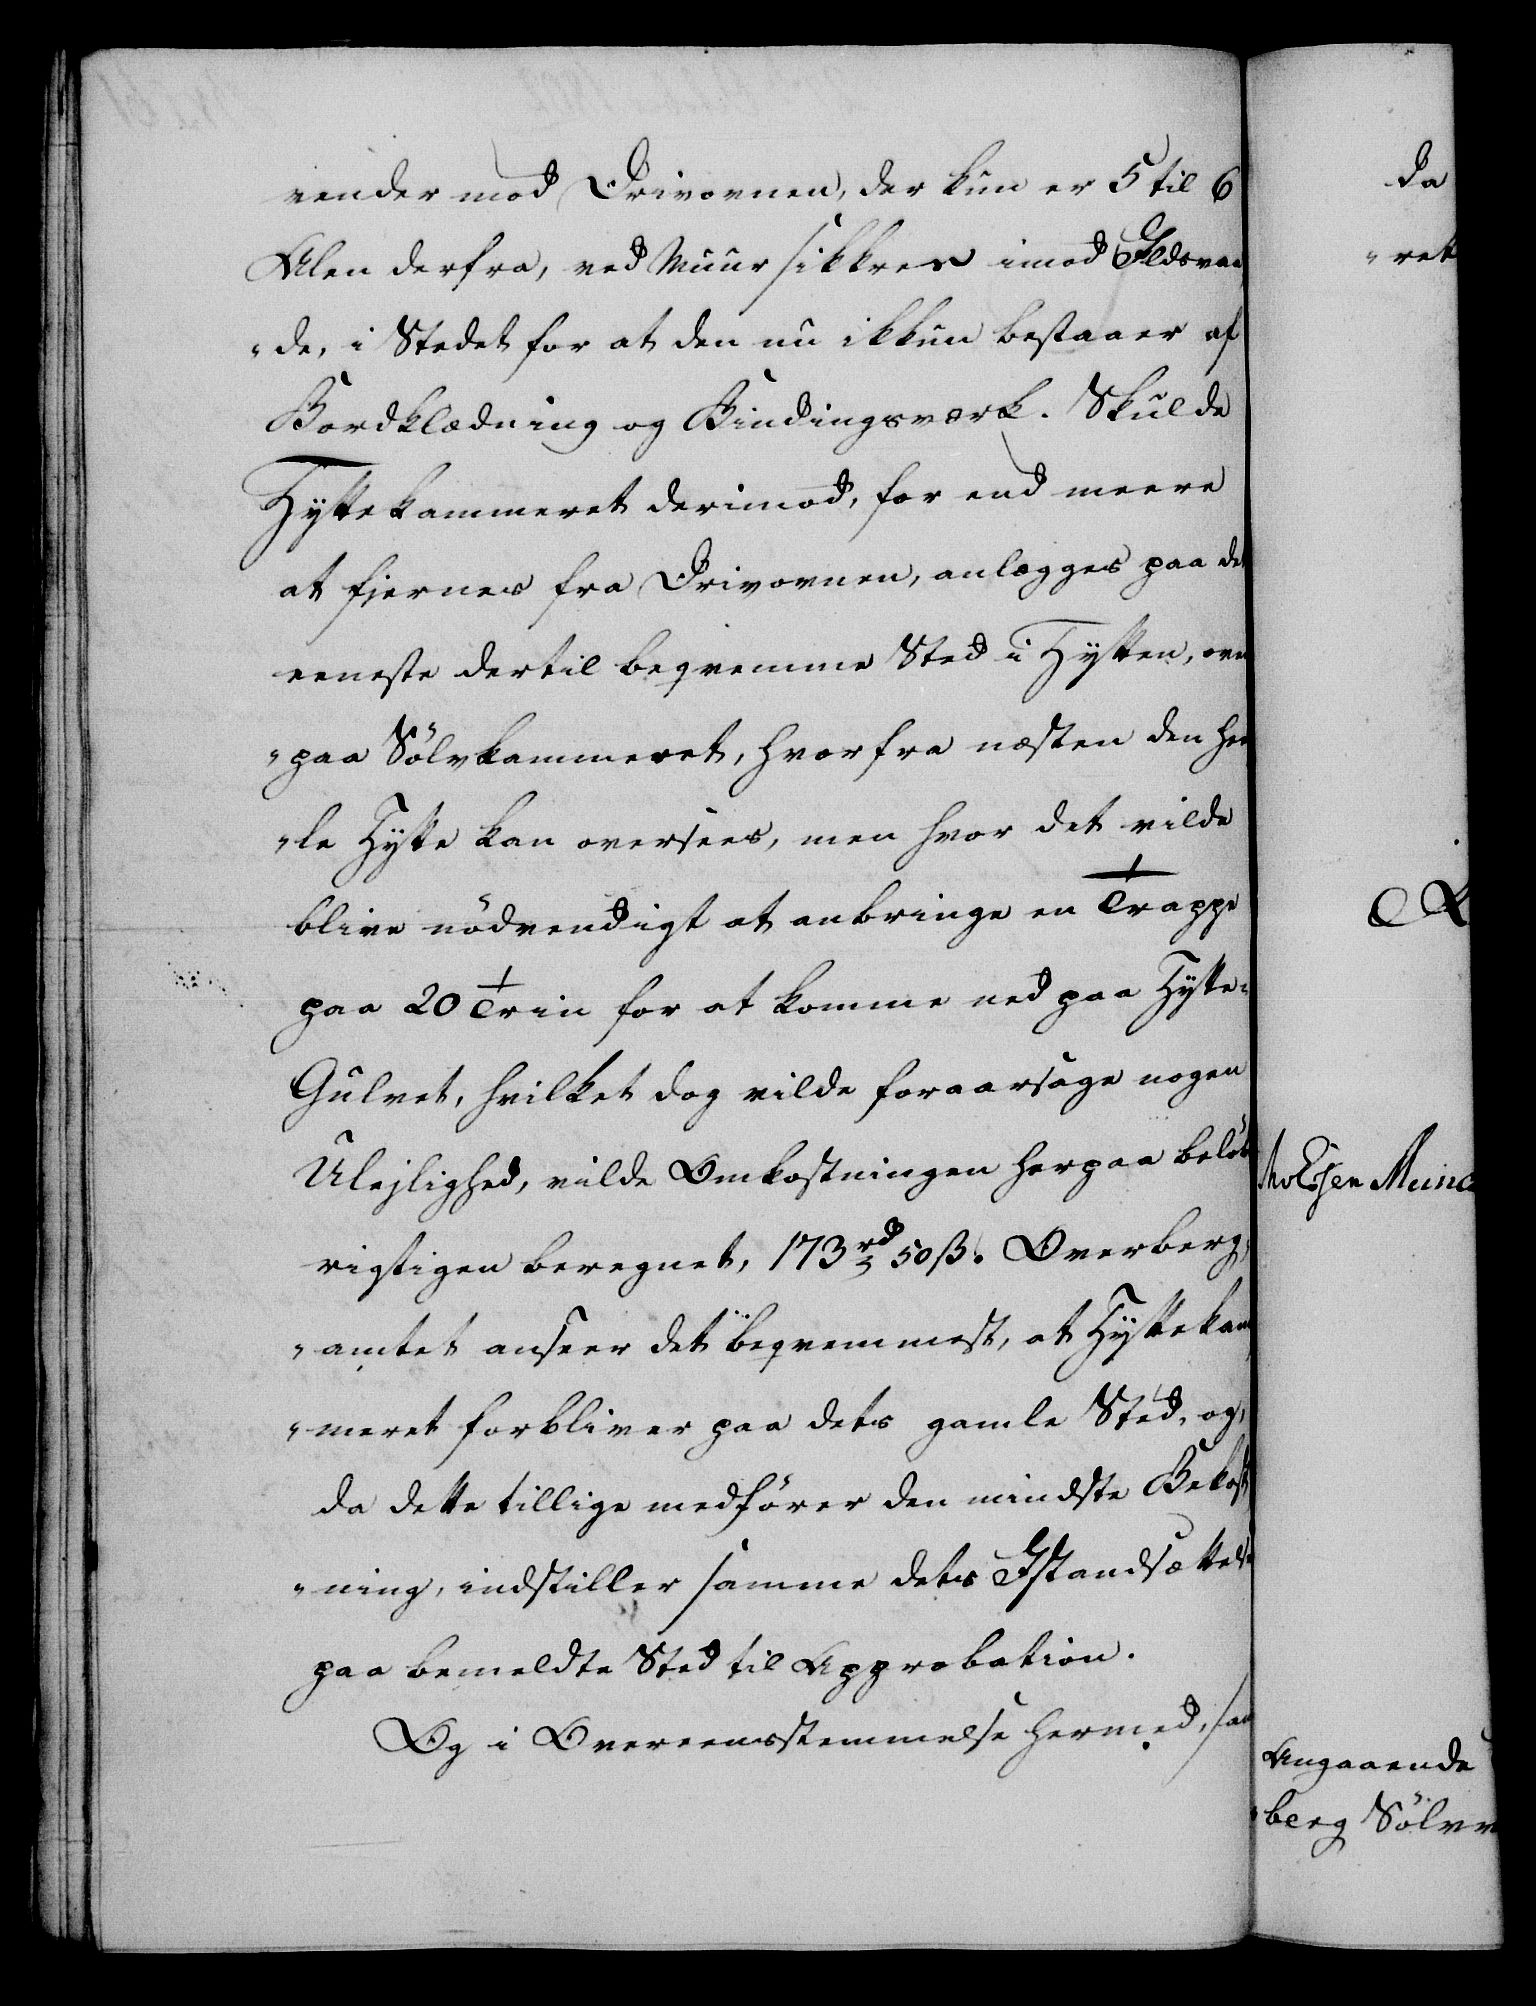 vender mod Drivovnen, der kun er 5 til 6
Alen derfra, ved Muur sikkres imod Ildsvaa
"de, i Stedet for at den nu ikkun bestaaer af
Bordklædning og Bindingsværk. Skulde
Hyttekammeret derimod, for end meere
at fjernes fra Drivovnen, anlægges paa det
eeneste dertil beqvemme Sted i Hytten, oven
"paa Sölvkammeret, hvorfra næsten den hee
"le Hytte kan oversees, men hvor det vilde
blive nödvendigt at anbringe en Trappe
paa 20 Trin for at komme ned paa Hytte-
Gulvet, hvilket dog vilde foraarsage nogen
Ulejlighed, vilde Omkostningen herpaa belöbe
rigtigen beregnet, 173 rd 50 ß. Overberg,
"amtet anseer det beqvemmest, at Hyttekam
"meret forbliver paa dets gamle Sted, og,
da dette tillige medförer den mindste Bekost
"ning, indstiller samme dets Istandsættelse
paa bemeldte Sted til Approbation.
Og i Overeensstemmelse hermed, saa
da
"ret
Angaaende
"berg Sölvv